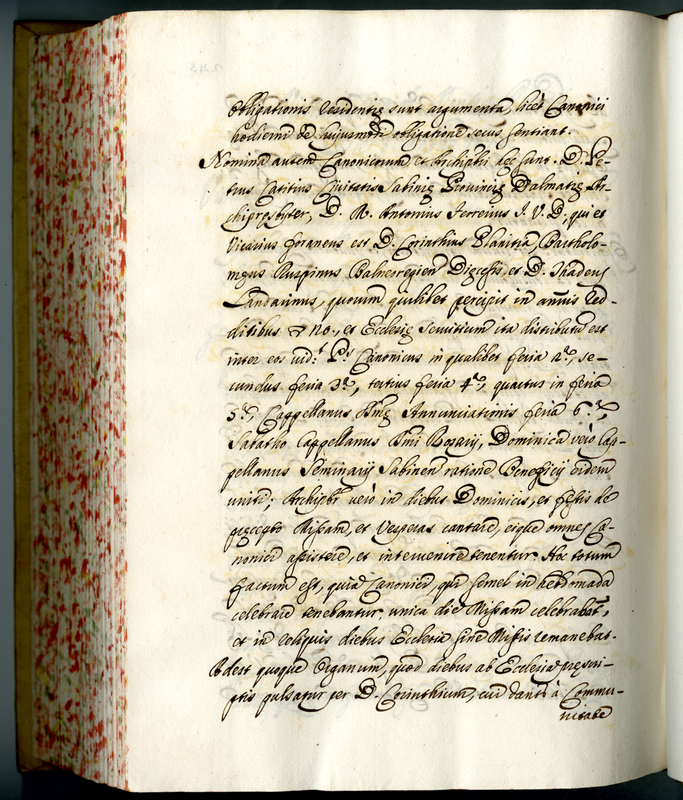 obligationis residentię sunt argumenta, licet Canonici
hodierni de huiusmodi obligatione secus sentiant.
Nomina autem Canonicorum et Archipbri hęc sunt. D. Pe-
trus Civitatis Provincię Dalmatię Ar-
chipręsbyter, D. R. Antonius I. V. D. qui et
Vicarius foraneus est D. Corinthius Planitia, Bartholo-
męus Ruspinus Balneoregien Dięcesis, et D. Thadeus
Landarinus, quorum quilibet percipit in annuis Red-
ditibus et Ecclesię servitium ita distributu est
inter eos vid.t P.s Canonicus in qualibet feria 2.a, se-
cundus feria 3.a, tertius feria 4.a, quartus in feria
5.a, Cappellanus Annunciationis feria 6.a,
Sabatho Cappellanus Rosarij, Dominica vero Cap-
pellanus Seminarij Sabinen ratione Beneficij eidem
uniti; Archipbr vero in diebus Dominicis, et festis de
pręcepto Missam, et Vesperas cantare, eique omnes Ca-
nonici assistere, et intervenire tenentur. Hoc totum
factum est, quia Canonici, qui semel in hebdomada
celebrare tenebantur, unica die Missam celebrabāt,
et in reliquis diebus Ecclesia sine Missis remanebat.
Adest quoque Organum, quod diebus ab Ecclesia pręscri-
ptis pulsatur per D. Corinthium, cui dantr à Commu-
nitate